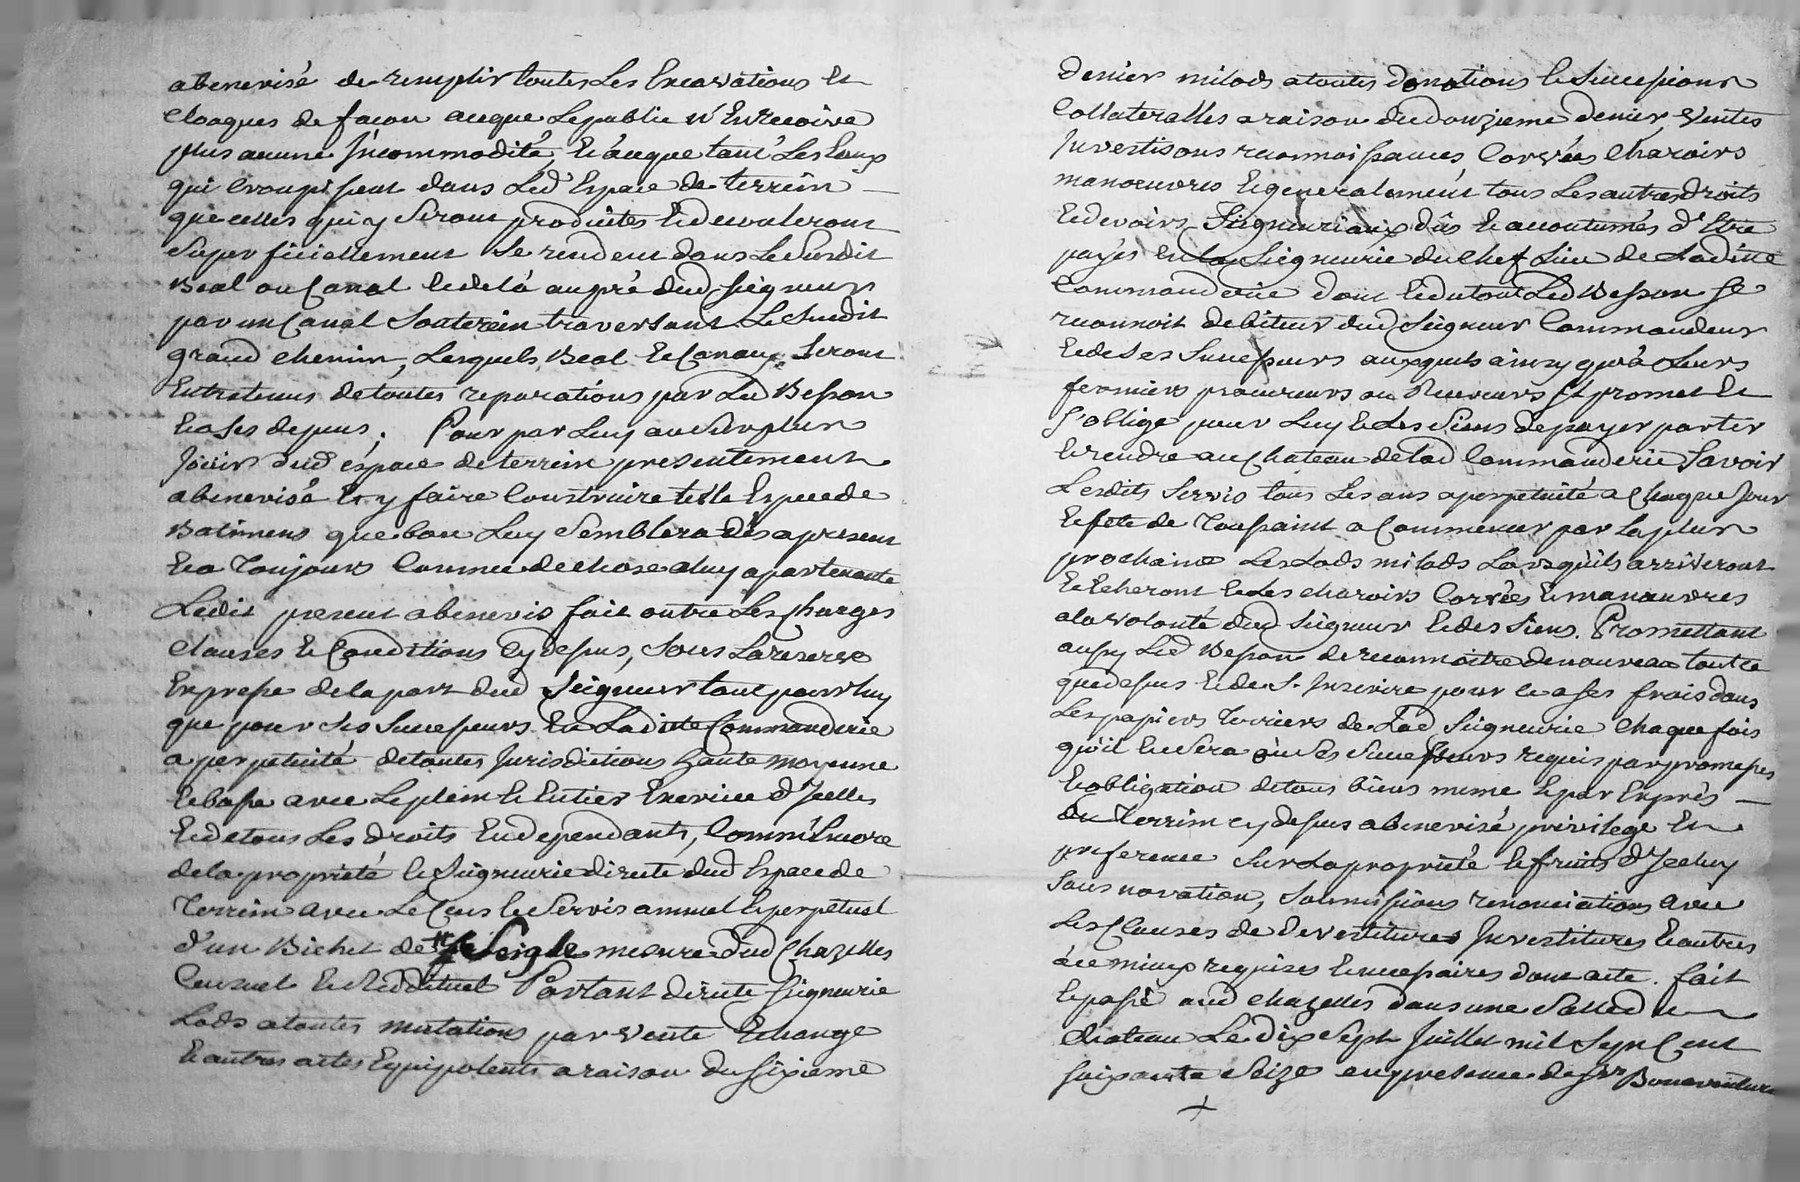 abenevisé de remplir toutes Les Excavations Et
Cloaques de facon aceque Lepublic n'En Recoive
plus aucune Jncommodité, Et áceque tant Les Eaux
qui Croupissent dans Led' Espace de terrein —
que celles qui y Seront produites Et devaleront
Superficiellement Se rendent dans Le Susdit
Beal ou Canal Et delá au pré dud Seigneur
par un Canal Souterein traversant Le Susdit
grand chemin, Lesquels Beal Et Canaux Seront
Entretenus de toutes reparations par Led Besson
Ea Ses depens. Pour par Luy au Surplus
Jouir dud éspace de terrein presentement
abenevisé Et y faire Construire telle Espece de
Batimens que bon Luy Semblera dès apresent
Ea Toujours Comme de chose aluy apartenante
Ledit present abenevis fait outre Les Charges
Clauses Et Conditions Cy dessus, Sous La reserve
Expresse de la part dud Seigneur tant pour luy
que pour Ses Successeurs En Ladite Commanderie
a perpetuité de toutes Jurisdictions haute moyenne
Et basse avec Le plein Et Entier Exercice d'Jcelles
Et de tous Les droits En dependants, Comm'Encore
de la propriété Et Seigneurie directe dud Espace de
Terrein avec Le Cens Et Servis annuel Et perpetuel
d'un Bichet de Seigle mesure dud Chazelles
Censuel Et Reddituel Portant directe Seigneurie
Lods a toutes mutations par vente Echange
Et autres actes Equipolents a raison du Sixieme
denier milods a toutes donations Et Successions
Collateralles a raison du douzieme denier, Ventes
Jnvestisons reconnoissances Corvées Charois
manoeuvres Et generalement tous Les autres droits
Et devoirs Seigneuriaux dûs Et accoutumés d'Etre
payés En La Seigneurie du Chef Lieu de Laditte
Commanderie dont Et du tout Led Besson Se
reconnoit debiteur dud Seigneur Commandeur
Et de Ses Successeurs auxquels ainsy qu'a Leurs
fermiers procureurs ou Receveurs Jl promet Et
S'oblige pour Luy Et Les Siens de payer porter
Et rendre au Chateau de lad Commanderie Savoir
Lesdits Servis tous Les ans a perpetuité a Chaque Jour
Et fete de Toussaint a Commencer par La plus
prochaine Les Lods milods Lorsqu'ils arriveront
Et Echeront Et Les charois Corvées Et manœuvres
a la volonté dud Seigneur Et des Siens. Promettant
aussy Led Besson de reconnoitre de nouveau tout Ce
que dessus Et de S. Jnscrire pour Ce a Ses frais dans
Les papiers Terriers de Lad Seigneurie Chaque fois
qu'il En Sera où Ses Successeurs requis par promesses
Et obligation de tous biens meme Et par Exprès —
du Terrein cy dessus abenevisé privilege Et
preference Sur La propriété Et fruits d'Jceluy
Sans novation, Soumissions renonciations avec
Les Clauses de Devestitures Jnvestitures Et autres
áce mieux requises Et necessaires dont acte. fait
Et passé aud Chazelles dans une Salle du
Chateau Le dix Sept Juillet mil Sept Cent
soixante Seize en presence de Sr Bonaventure